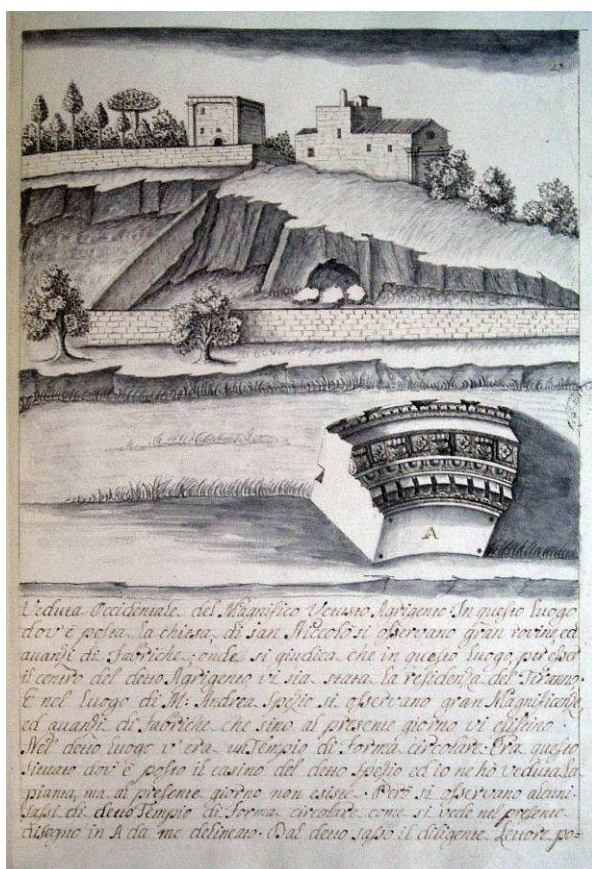 23
A
Veduta Occidentale del Magnifico Vetusto Agrigento. In questo luogo
dov'è posta la chiesa di san Niccolò si osservano gran rovine, ed
avanzi di Fabriche; onde si giudica che in questo luogo, per esser
il centro del detto Agrigento vi sia stata la residenza del Tiranno.
E nel luogo di M: Andrea Spezio si osservano gran Magnificenze
ed avanzi di Fabriche che sino al presente giorno vi esistino.
Nel detto luogo v'era un Tempio di Forma circolare. Era questo
situato dov'è posto il casino del detto Spezio ed io ne hò veduta la
pianta, ma al presente giorno non esiste. Però si osservano alcuni
sassi di detto Tempio di Forma circolare come si vede nel presente
disegno in A da me delineato. Dal detto sasso il diligente Lettore po=